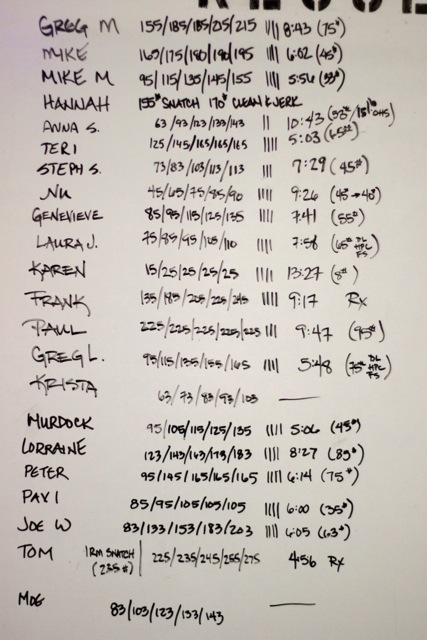 GREG M 155/185/185/205/215 |||| 8:43 (75#)
MIKE 165/175/180/190/195 |||| 6:02 (45#)
MIKE M 95/115/135/145/155 |||| 5:56 (33#)
HANNAH 155# SNATCH 170# CLEAN & JERK
ANNA S. 63/93/123/133/143 || 10:43 (33# / 18# OHS)
TERI 125/145/165/165/165 |||| 5:03 (65#)
STEPH S. 73/83/103/113/113 ||| 7:29 (45#)
45/65/75/85/90 |||| 9:26 (45 → 40#)
GENEVIEVE 85/95/115/125/135 |||| 7:41 (55#)
LAURA J. 75/85/95/105/110 |||| 7:58 (65# DL HPC FS)
KAREN 15/25/25/25/25 |||| 13:27 (8#)
FRANK 135/185/205/225/245 |||| 9:17 Rx
PAUL 225/225/225/225/225 |||| 9:47 (95#)
GREG L. 95/115/135/155/165 |||| 5:48 (75# DL HPC FS)
KRISTA 63/73/83/93/103 —
MURDOCK 95/105/115/125/135 |||| 5:06 (45#)
LORRAINE 123/143/163/173/183 |||| 8:27 (83#)
PETER 95/145/165/165/165 |||| 6:14 (75#)
PAVI 85/95/105/105/105 |||| 6:00 (35#)
JOE W 83/133/153/183/203 |||| 6:05 (63#)
TOM 1RM SNATCH (235#) | 225/235/245/255/275 4:56 Rx
MOE 83/103/123/133/143 —